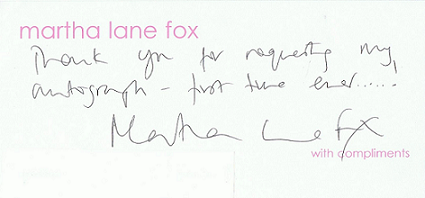 martha lane fox
Thank you for requesting my
autograph - first time ever......
Martha Lane Fox
with compliments